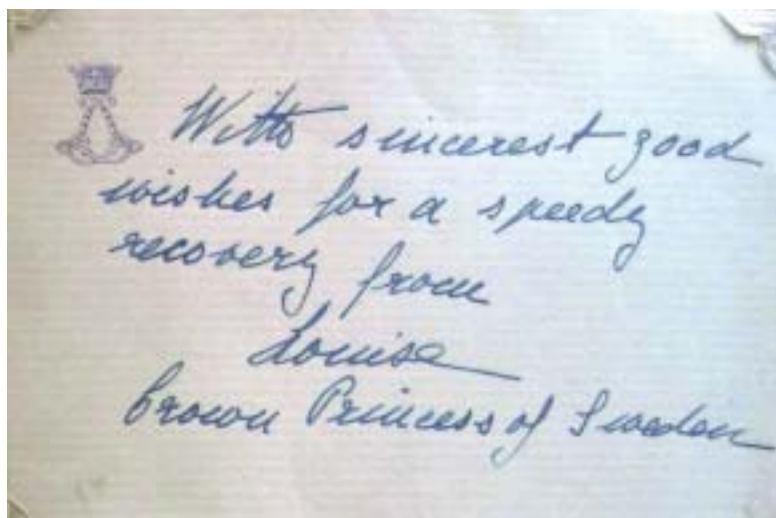 With sincerest good
wishes for a speedy
recovery from
Louise
Crown Princess of Sweden